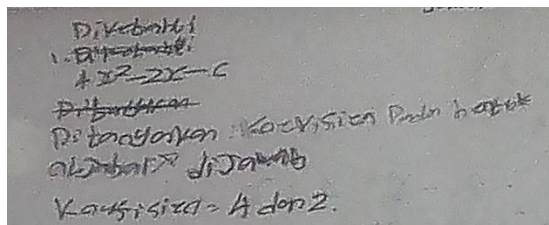 Diketahui
1.
4x²-2x-c
Ditanyakan koevisien Pada bentuk
aljabar? dijawab
Koefisien = 4 dan 2.